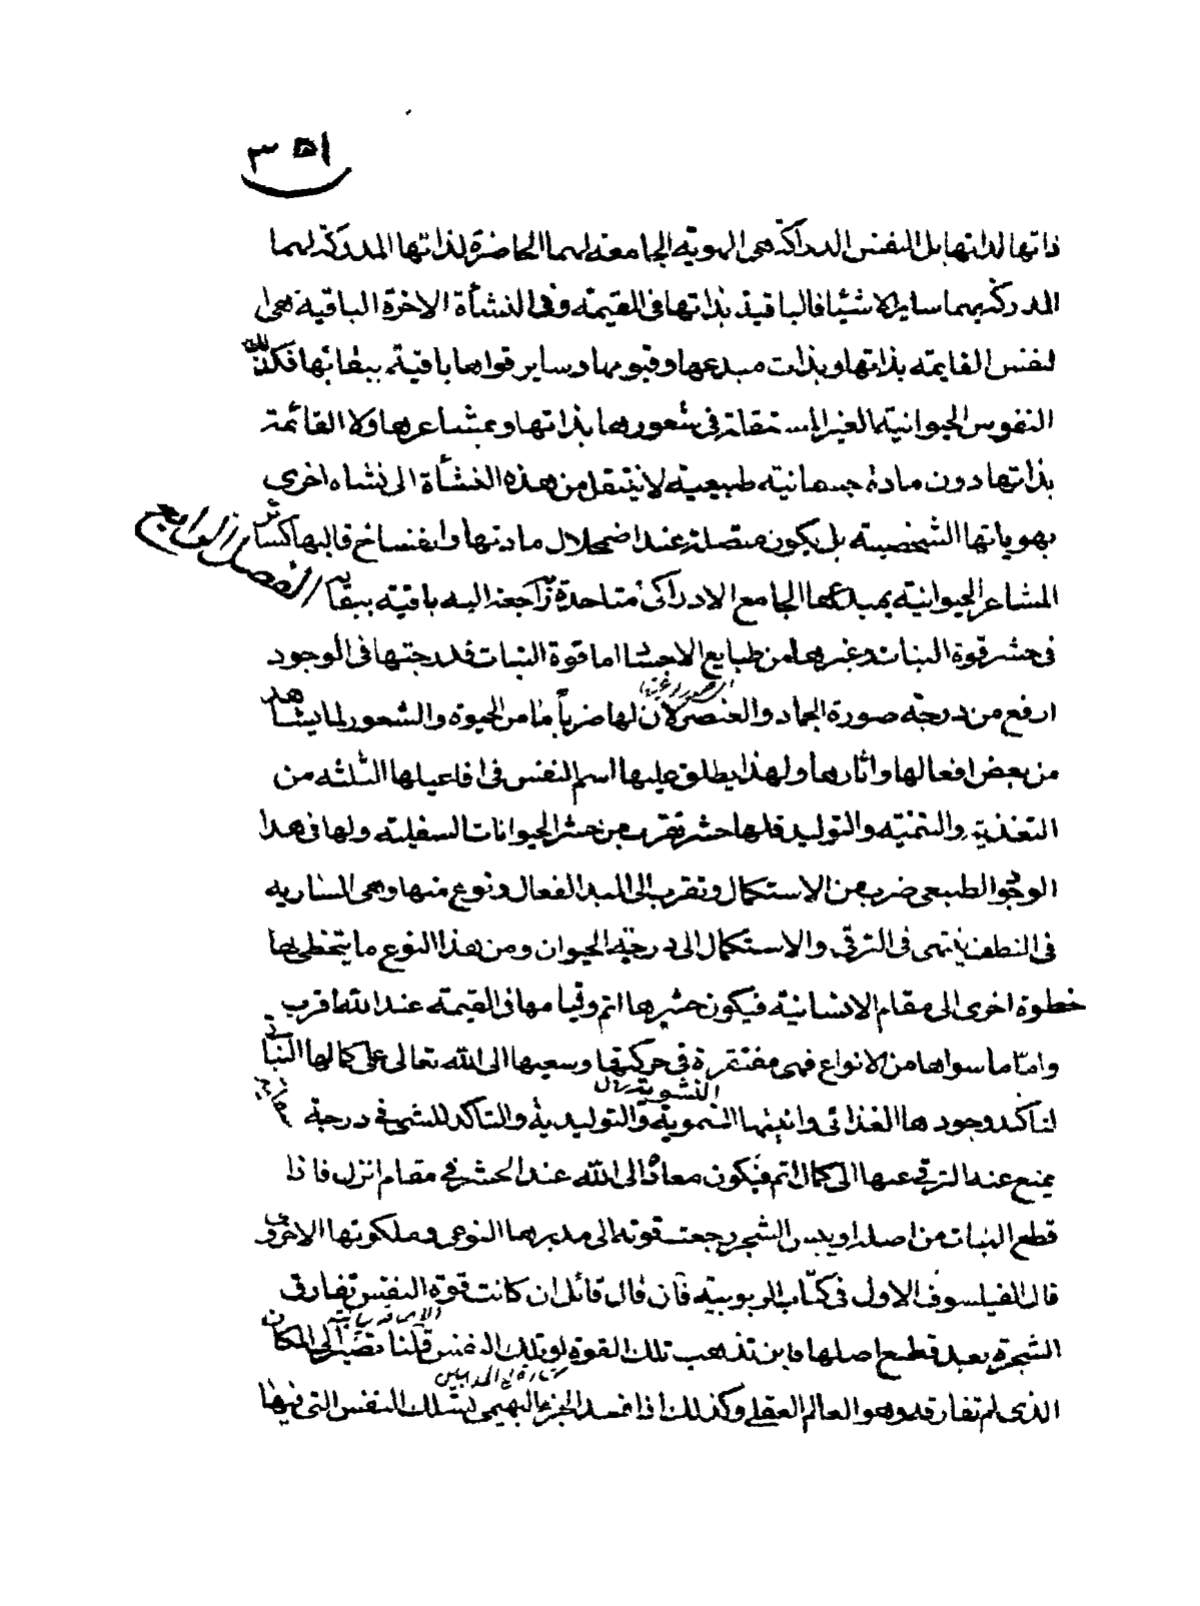 ٣٥١
ذاتها لذاتها بل النفس الدراكة هى الهوية الجامعة لهما الحاضرة لذاتها المدركة لهما
المدركة بهما ساير الاشيا فالباقية بذاتها فى القيمة وفى النشأة الاخرة الباقية هى ا
لنفس القايمة بذاتها وبذات مبدعها وقيومها وساير قواها باقية ببقائها فكذلك
النفوس الحيوانية الغير المستقلة فى شعورها بذاتها وبمشاعرها ولا القائمة
بذاتها دون مادة جسمانية طبيعية لا ينتقل من هذه النشأة الى نشاه اخرى
بهوياتها الشخصية بل يكون متصلة عند اضمحلال مادتها وانفساخ قالبها كسائر
المشاعر الحيوانية بمبدعها الجامع الادراكى متاحدة به راجعة اليه باقية ببقائه الفصل الرابع
فى حشر قوة النبات وغيرها من طبايع الاجسا اما قوة النبات فدرجتها فى الوجود
ارفع من درجة صورة الجماد والعنصر لان لها ضرباً ما من الحيوة والشعور لما يشاهد
من بعض افعالها واثارها ولهذا يطلق عليها اسم النفس فى افاعيلها الثلثه من
التغذية والتنمية والتوليد فلها حشر تقرب من حشر الحيوانات السفلية ولها فى هذا
الوجود الطبيعى ضرب من الاستكمال وتقرب الى المبد الفعال ونوع منها وهى السارية
فى النطف ينتهى فى الترقى والاستكمال الى درجة الحيوان ومن هذا النوع ما يتخطى بها
خطوة اخرى الى مقام الانسانية فيكون حشرها اتم وقيامها فى القيمة عند الله اقرب
واما ما سواها من الانواع فهى مفتقرة فى حركتها وسعيها الى الله تعالى على كمالها النباتى
لتأكد وجودها الغذائى وانيتها النموية والتوليدية والتاكد للشى فى درجة
يمنع عند الترقى عنها الى كمال اتم فيكون معاده الى الله عند الحشر فى مقام انزل فاذا
قطع النبات من اصله او يبس الشجر رجعت قوته الى مدبرها النوعى وملكوتها الاخروى
قال الفيلسوف الاول فى كتاب الربوبية فان قال قائل ان كانت قوة النفس تفارق
الشجرة بعد قطع اصلها فاين تذهب تلك القوة او تلك النفس قلنا تصير الى المكان
الذى لم تفارقه وهو العالم العقلى وكذلك اذا فسد الجزء البهيمى تسلك النفس التى فيها